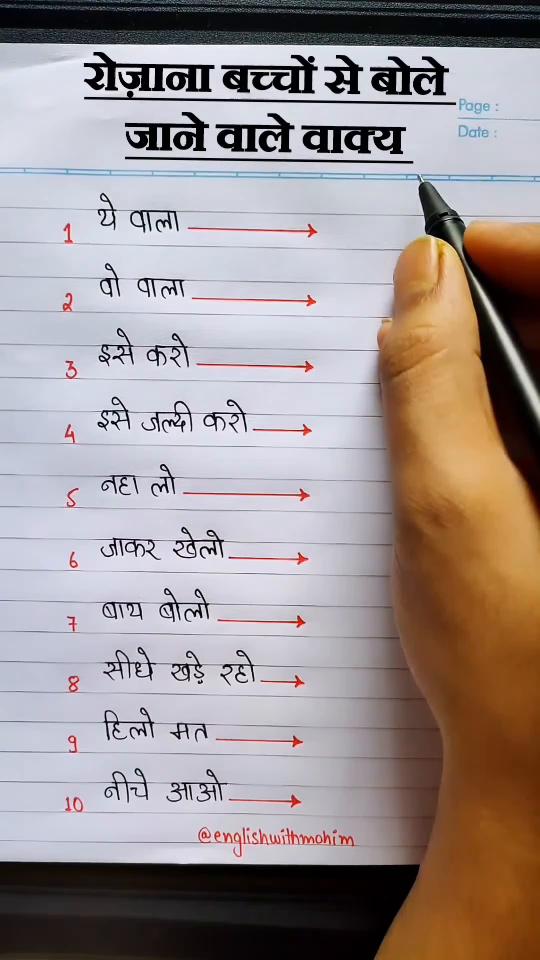 रोज़ाना बच्चों से बोले
जाने वाले वाक्य
Page :
Date :
1 ये वाला
2 वो वाला
3 इसे करो
4 इसे जल्दी करो
5 नहा लो
6 जाकर खेलो
7 बाय बोलो
8 सीधे खड़े रहो
9 हिलो मत
10 नीचे आओ
@englishwithmahim